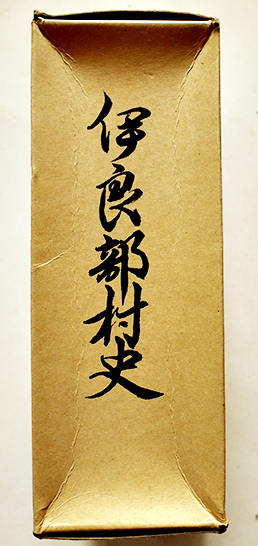 伊良部村史